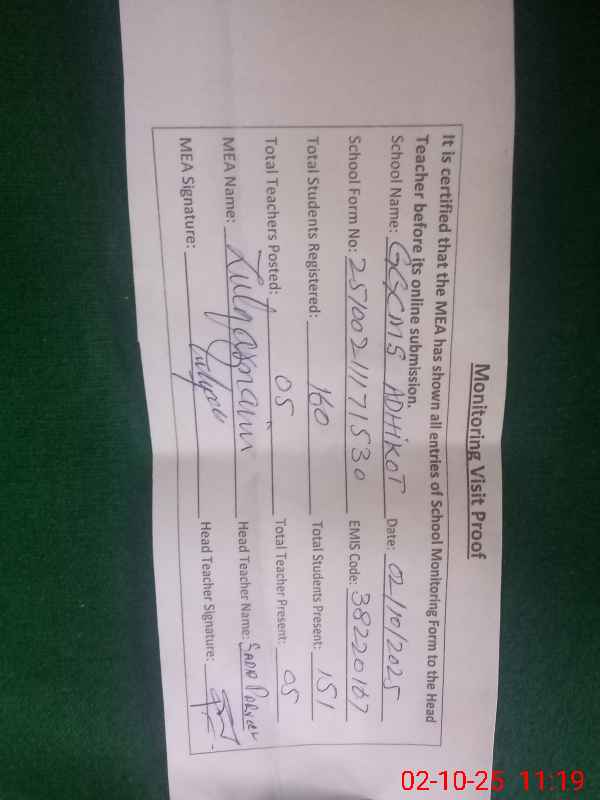 Monitoring Visit Proof
It is certified that the MEA has shown all entries of School Monitoring Form to the Head
Teacher before its online submission.
School Name: GGCMS ADHIKOT Date: 02/10/2025
School Form No: 25100211171530 EMIS Code: 38220167
Total Students Registered: 160 Total Students Present: 151
Total Teachers Posted: 05 Total Teacher Present: 05
MEA Name: Head Teacher Name:
MEA Signature: Head Teacher Signature:
02-10-25 11:19